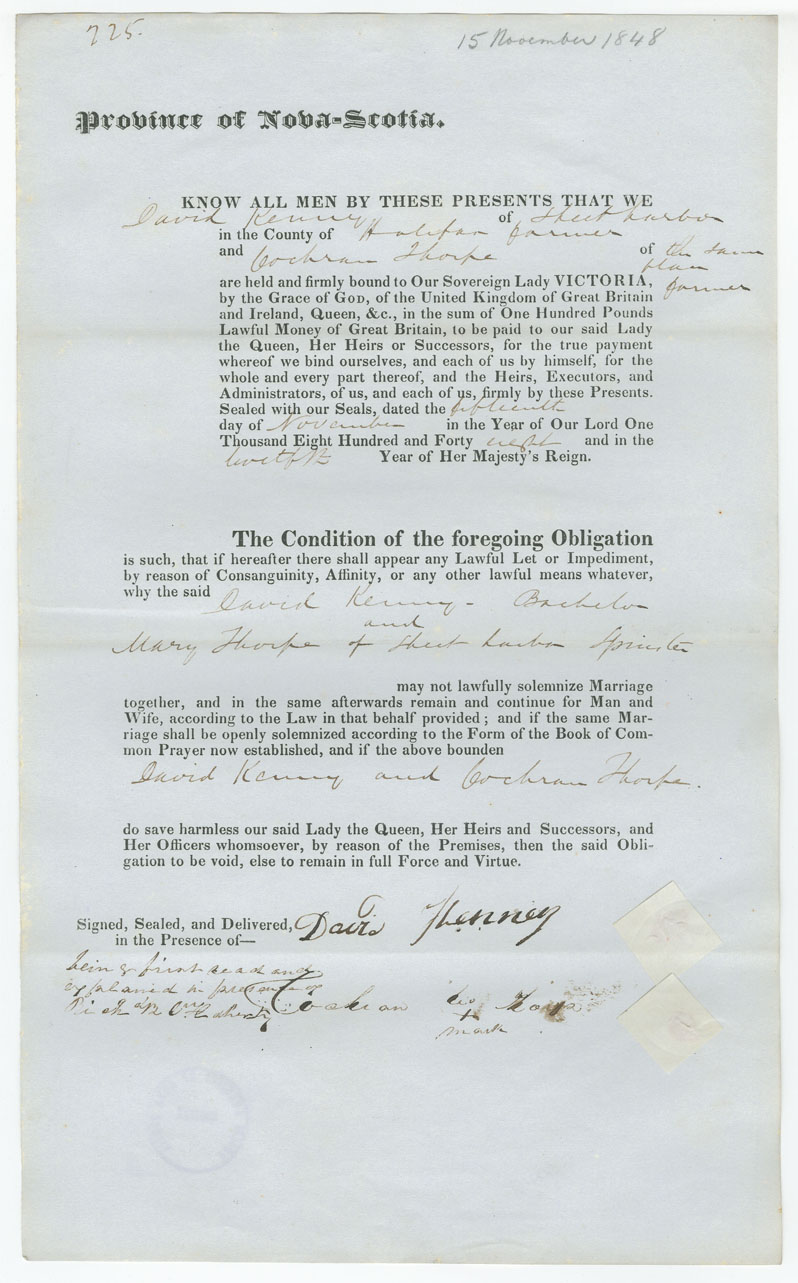 225.
15 November 1848
Province of Nova-Scotia.
KNOW ALL MEN BY THESE PRESENTS THAT WE
David Kenny of Sheet harbor
in the County of Halifax farmer
and Cochran Thorpe of the same
place
farmer
are held and firmly bound to Our Sovereign Lady VICTORIA,
by the Grace of GOD, of the United Kingdom of Great Britain
and Ireland, Queen, &c., in the sum of One Hundred Pounds
Lawful Money of Great Britain, to be paid to our said Lady
the Queen, Her Heirs or Successors, for the true payment
whereof we bind ourselves, and each of us by himself, for the
whole and every part thereof, and the Heirs, Executors, and
Administrators, of us, and each of us, firmly by these Presents.
Sealed with our Seals, dated the fifteenth
day of November in the Year of Our Lord One
Thousand Eight Hundred and Forty eight and in the
twelfth Year of Her Majesty's Reign.
The Condition of the foregoing Obligation
is such, that if hereafter there shall appear any Lawful Let or Impediment,
by reason of Consanguinity, Affinity, or any other lawful means whatever,
why the said David Kenny - Bachelor
and
Mary Thorpe of Sheet harbor Spinster
may not lawfully solemnize Marriage
together, and in the same afterwards remain and continue for Man and
Wife, according to the Law in that behalf provided; and if the same Mar-
riage shall be openly solemnized according to the Form of the Book of Com-
mon Prayer now established, and if the above bounden
David Kenny and Cochran Thorpe.
do save harmless our said Lady the Queen, Her Heirs and Successors, and
Her Officers whomsoever, by reason of the Premises, then the said Obli-
gation to be void, else to remain in full Force and Virtue.
Signed, Sealed, and Delivered, David Kenney
in the Presence of—
being first read and
explained in presence of
Cochran his
+
mark